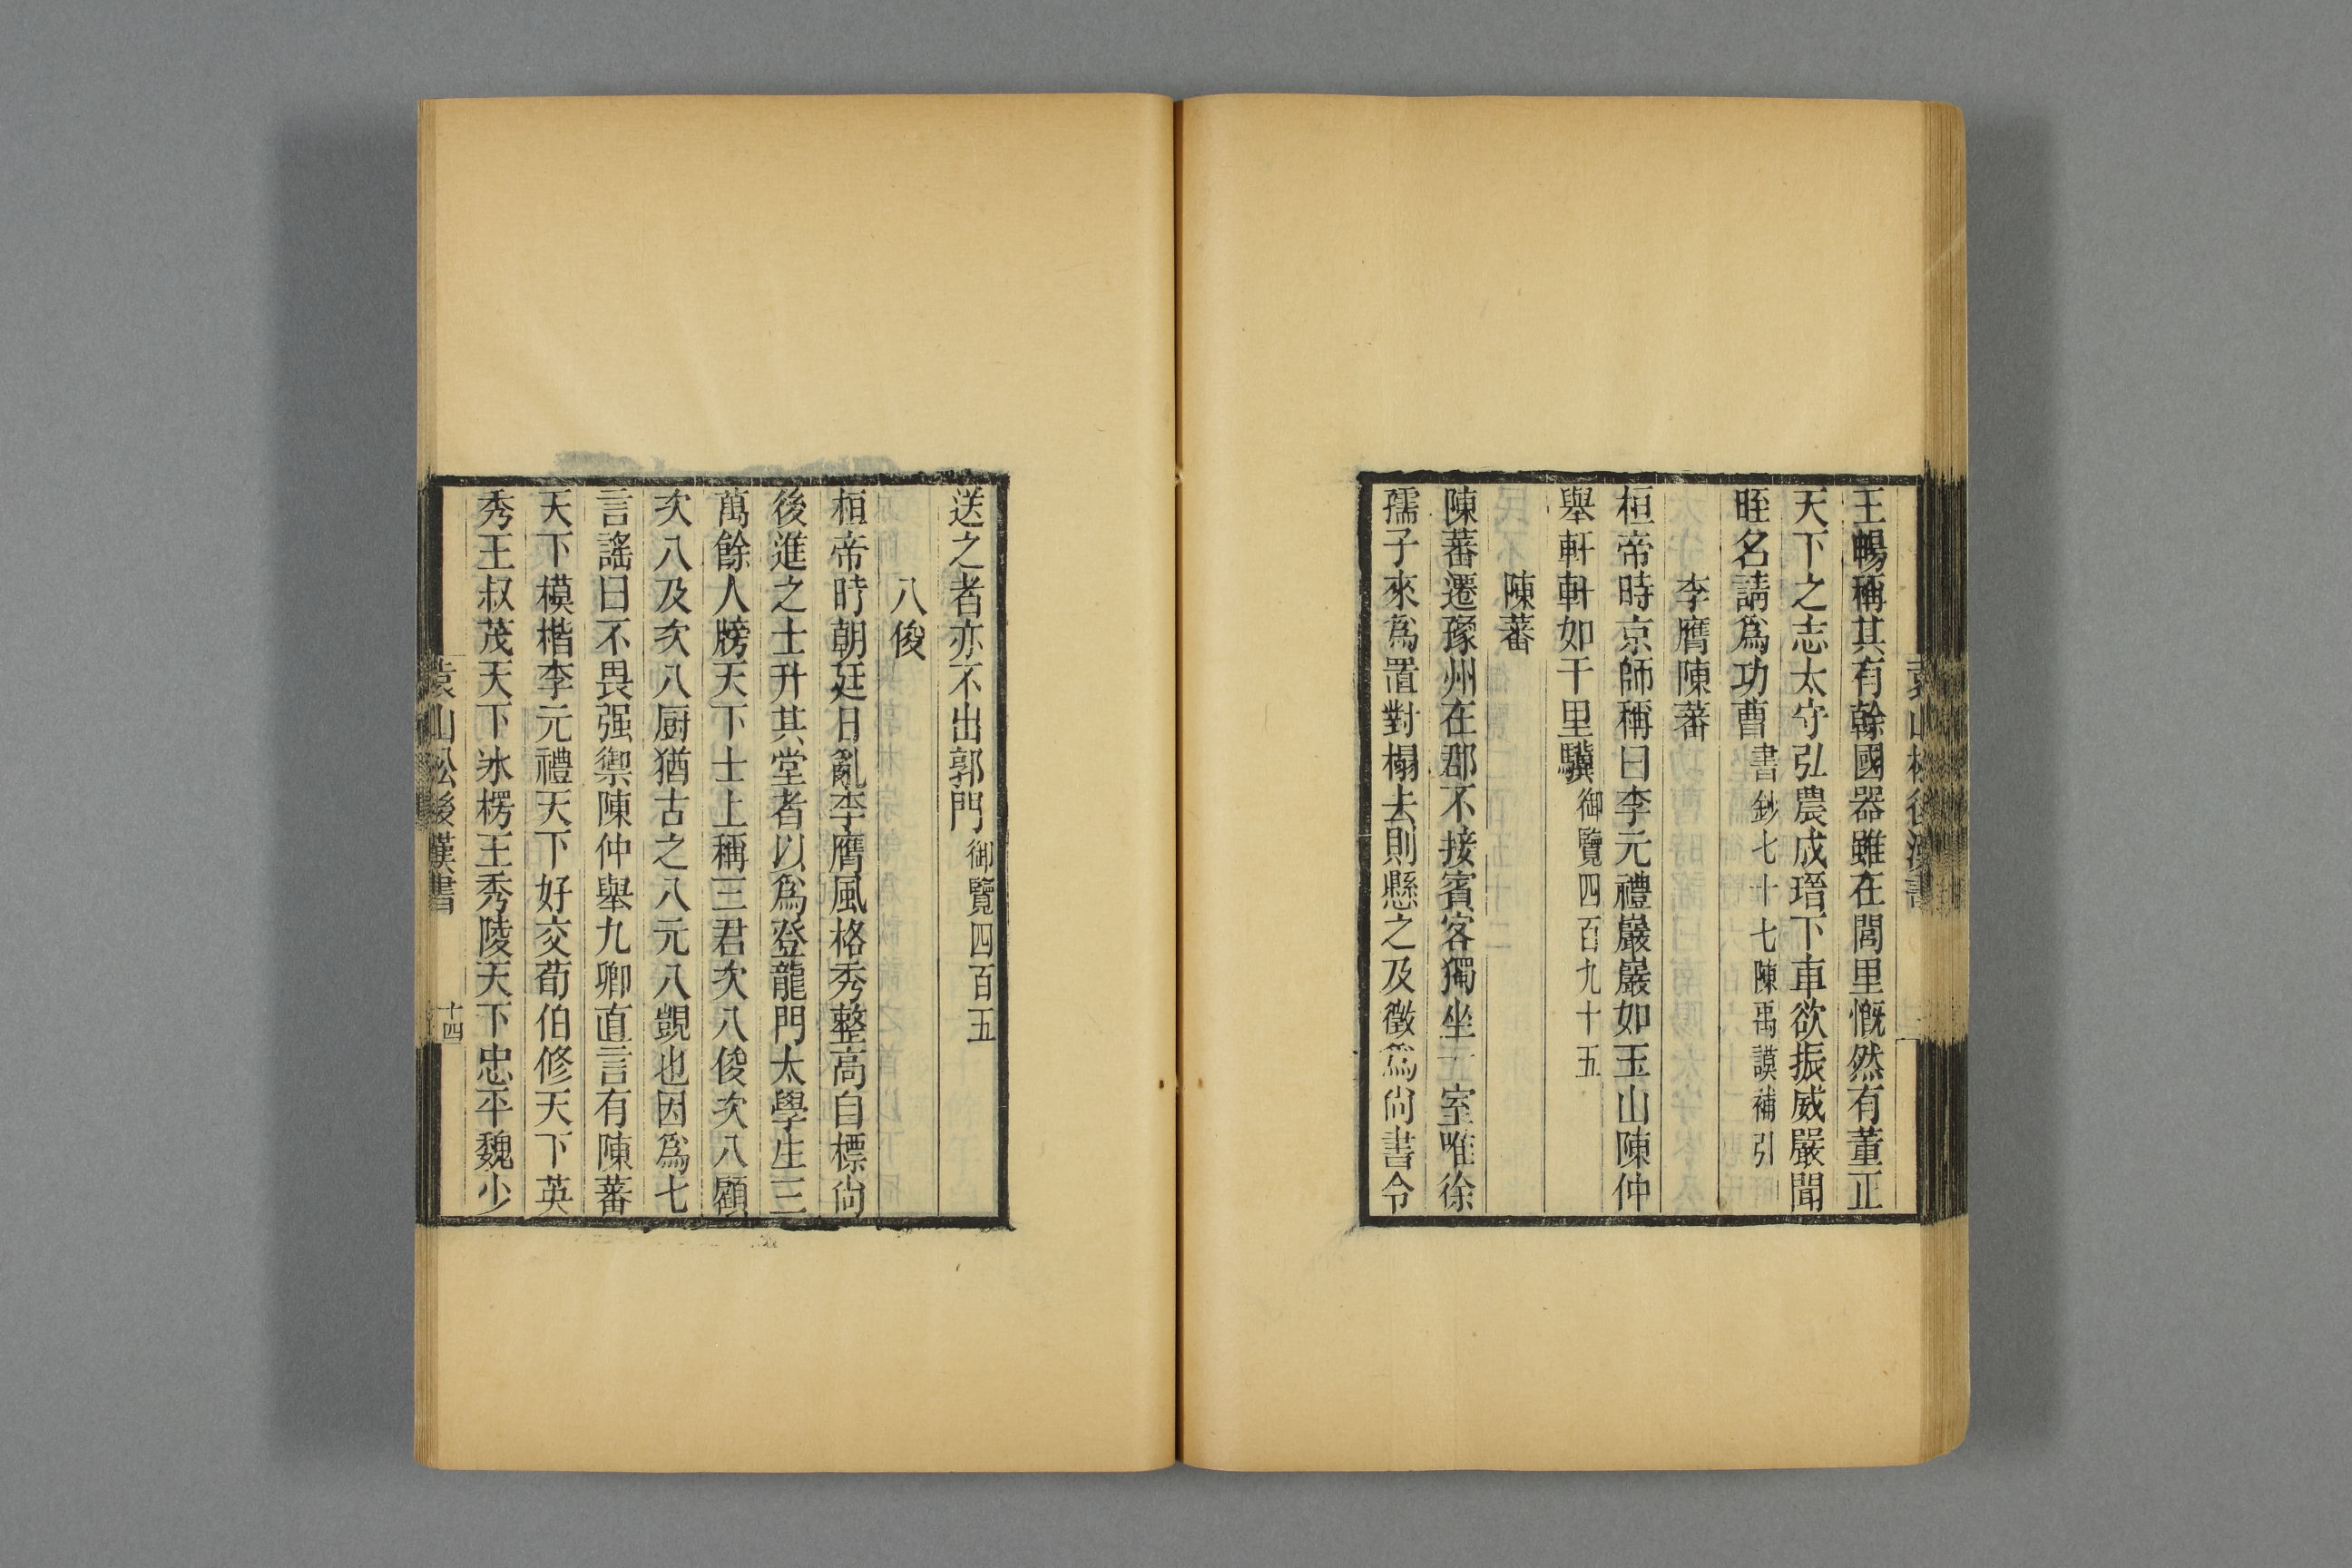 王暢稱其有幹國器雖在閭里慨然有董正
天下之志太守弘農成瑨下車欲振威嚴聞
晊名請爲功曹書鈔七十七陳禹謨補引
李膺陳蕃
桓帝時京師稱曰李元禮巖巖如玉山陳仲
舉軒軒如千里驥御覽四百九十五
陳蕃
陳蕃遷豫州在郡不接賓客獨坐一室唯徐
孺子來爲置對榻去則懸之及徵爲尚書令
送之者亦不出郭門御覽四百五
八俊
桓帝時朝廷日亂李膺風格秀整高自標尚
後進之士升其堂者以爲登龍門太學生三
萬餘人牓天下士上稱三君次八俊次八顧
次八及次八廚猶古之八元八凱也因爲七
言謠曰不畏强禦陳仲舉九卿直言有陳蕃
天下模楷李元禮天下好交荀伯修天下英
秀王叔茂天下氷楞王秀陵天下忠平魏少
袁山松後漢書
十四